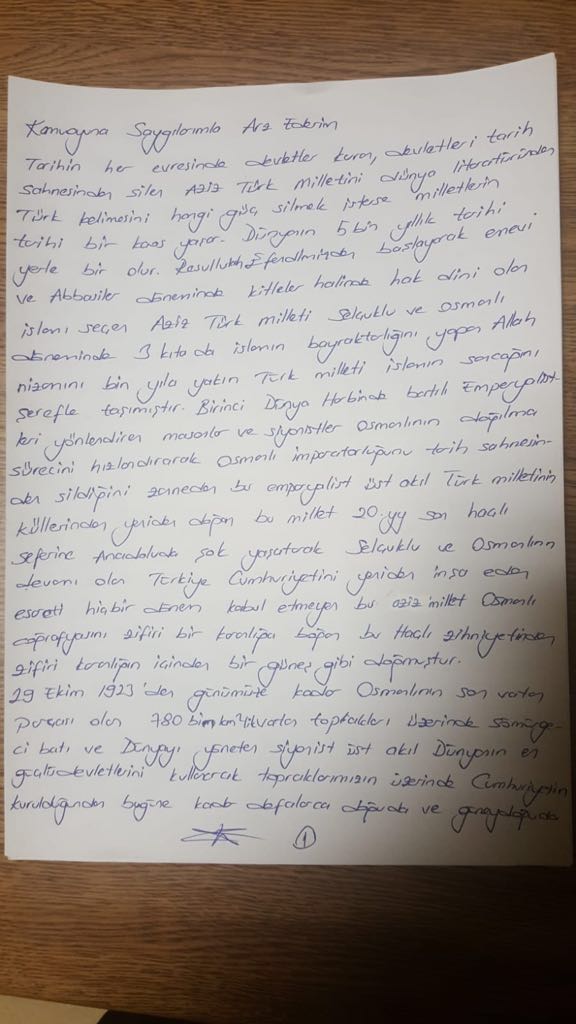 Kamuoyuna Saygılarımla Arz Ederim
Tarihin her evresinde devletler kuran, devletleri tarih
sahnesinden silen Aziz Türk Milletini dünya literatüründen
Türk kelimesini hangi güç silmek isterse milletlerin
tarihi bir kaos yaşar. Dünyanın 5 bin yıllık tarihi
yerle bir olur. Resullullah Efendimizden başlayarak emevi
ve Abbasiler döneminde kitleler halinde hak dini olan
islamı seçen Aziz Türk milleti Selçuklu ve Osmanlı
döneminde 3 kıtada islamın bayraktarlığını yapan Allah
nizamını bin yıla yakın Türk milleti islamın sancağını
şerefle taşımıştır. Birinci Dünya Harbinde batılı Emperyalist-
leri yönlendiren masonlar ve siyonistler Osmanlının dağılma
sürecini hızlandırarak Osmanlı imparatorluğunu tarih sahnesin-
den sildiğini zanneden bu emperyalist üst akıl Türk milletinin
küllerinden yeniden doğan bu millet 20.yy son haçlı
seferine Anadoluda şok yaşatarak Selçuklu ve Osmanlının
devamı olan Türkiye Cumhuriyetini yeniden inşa eden
esareti hiçbir dönem kabul etmeyen bu aziz millet Osmanlı
coğrafyasını zifiri bir karanlığa boğan bu Haçlı zihniyetinden
zifiri karanlığın içinden bir güneş gibi doğmuştur.
29 Ekim 1923'den günümüze kadar Osmanlının son vatan
parçası olan 780 bin km²lik vatan toprakları üzerinde sömürge-
ci batı ve Dünyayı yöneten siyonist üst akıl Dünyanın en
güçlü devletlerini kullanarak topraklarımızın üzerinde Cumhuriyetin
kurulduğundan bugüne kadar defalarca doğuda ve güneydoğuda
1